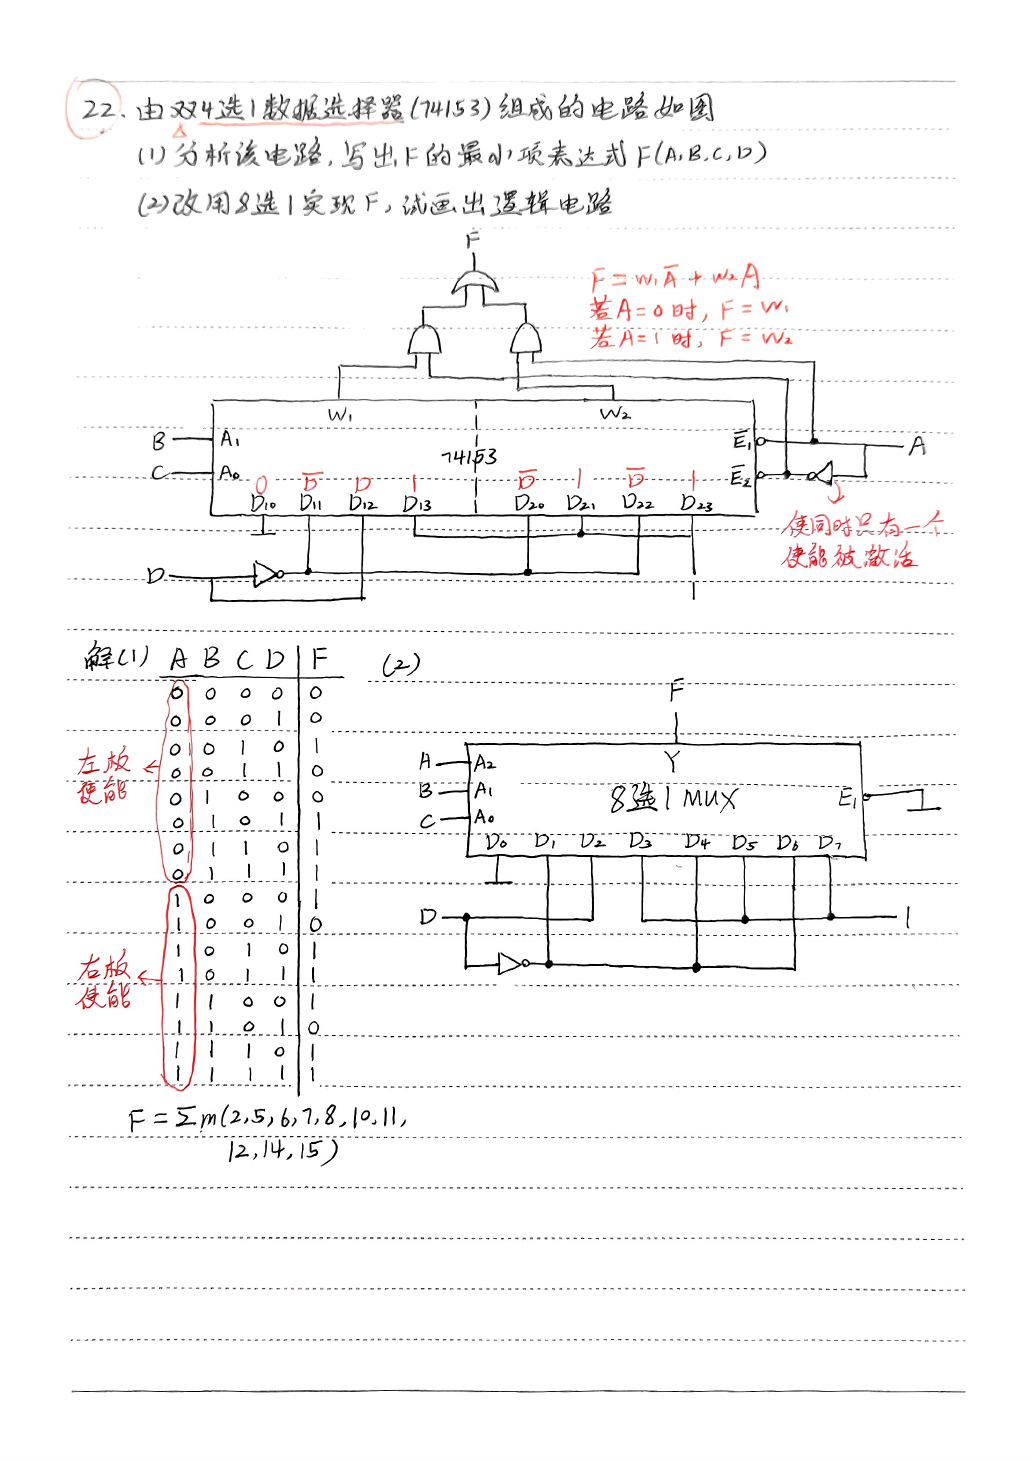 22. 由双4选1数据选择器(74153)组成的电路如图
(1) 分析该电路, 写出F的最小项表达式 F(A,B,C,D)
(2) 改用8选1实现F, 试画出逻辑电路
F
F = W₁A̅ + W₂A
若A=0时, F=W₁
若A=1时, F=W₂
W₁ W₂
B A₁ E̅₁ A
74153
C A₀ E̅₂
0 D̅ D 1 D̅ 1 D̅ 1
D₁₀ D₁₁ D₁₂ D₁₃ D₂₀ D₂₁ D₂₂ D₂₃
使同时只有一个
使能被激活
D
1
解(1) A B C D F
0 0 0 0 0
0 0 0 1 0
0 0 1 0 1
0 0 1 1 0
0 1 0 0 0
0 1 0 1 1
0 1 1 0 1
0 1 1 1 1
左板
使能
1 0 0 0 1
1 0 0 1 0
1 0 1 0 1
1 0 1 1 1
1 1 0 0 1
1 1 0 1 0
1 1 1 0 1
1 1 1 1 1
右板
使能
F = Σm(2,5,6,7,8,10,11,
12,14,15)
(2)
F
A A₂ Y
B A₁ 8选1 MUX E̅₁
C A₀
D₀ D₁ D₂ D₃ D₄ D₅ D₆ D₇
D 1